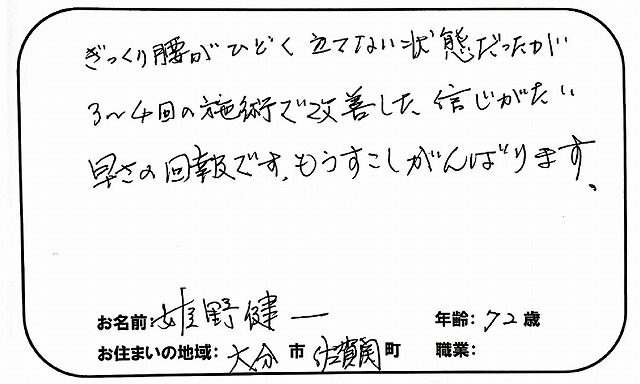 ぎっくり腰がひどく立てない状態だったが
3〜4回の施術で改善した、信じがたい
早さの回報です、もうすこしがんばります、
お名前:姫野健一 年齢:72歳
お住まいの地域:大分市佐賀関町 職業: